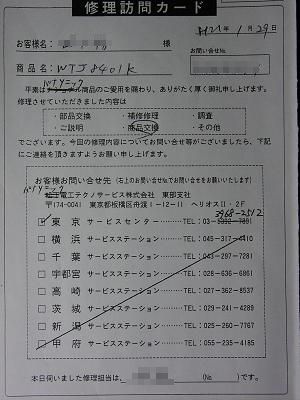 修理訪問カード
H21年 1月29日
お客様名: 様
お問い合せNo.
商品名: WTJ8401K
パナソニック
平素は商品のご愛用を賜わり、ありがたく厚く御礼申し上げます。
修理させていただきました内容は
・部品交換 ・補修修理 ・調査
・ご説明 ・商品交換 ・その他
でございます。今回の修理内容についてお問い合せ等がございましたら、下記
にご連絡を頂きますようお願い申し上げます。
お客様お問い合せ先 (右上のお問い合せNo.でお問い合せをお願いいたします)
パナソニック
電工テクノサービス株式会社 東部支社
〒174-0041 東京都板橋区舟渡1-12-11 ヘリオスⅡ・2F
3968-2512
東京 サービスセンター TEL:03-5392-7891
横浜 サービスステーション TEL:045-317-4410
千葉 サービスステーション TEL:043-297-7281
宇都宮 サービスステーション TEL:028-636-6861
高崎 サービスステーション TEL:027-362-8537
茨城 サービスステーション TEL:029-241-4289
新潟 サービスステーション TEL:025-260-7767
甲府 サービスステーション TEL:055-235-4185
本日伺いました修理担当は、 (No. )です。